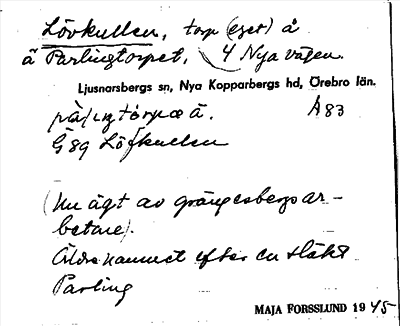 Lövkullen, torp (eget) å
ä Parlingtorpet, 4 Nya vägen.
Ljusnarsbergs sn, Nya Kopparbergs hd, Örebro län.
A83
G 89 Löfkullen
(nu ägt av grängesbergsar-
betare).
Äldre namnet efter en släkt
Parling
MAJA FORSSLUND 1945